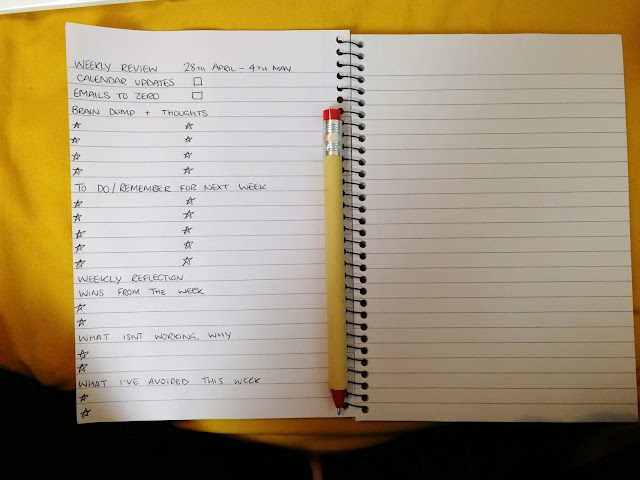 WEEKLY REVIEW 28TH APRIL - 4TH MAY
CALENDAR UPDATES □
EMAILS TO ZERO □
BRAIN DUMP + THOUGHTS
☆ ☆
☆ ☆
☆ ☆
☆ ☆
TO DO/REMEMBER FOR NEXT WEEK
☆ ☆
☆ ☆
☆ ☆
☆ ☆
☆ ☆
WEEKLY REFLECTION
WINS FROM THE WEEK
☆
☆
WHAT ISNT WORKING, WHY
☆
☆
WHAT I'VE AVOIDED THIS WEEK
☆
☆